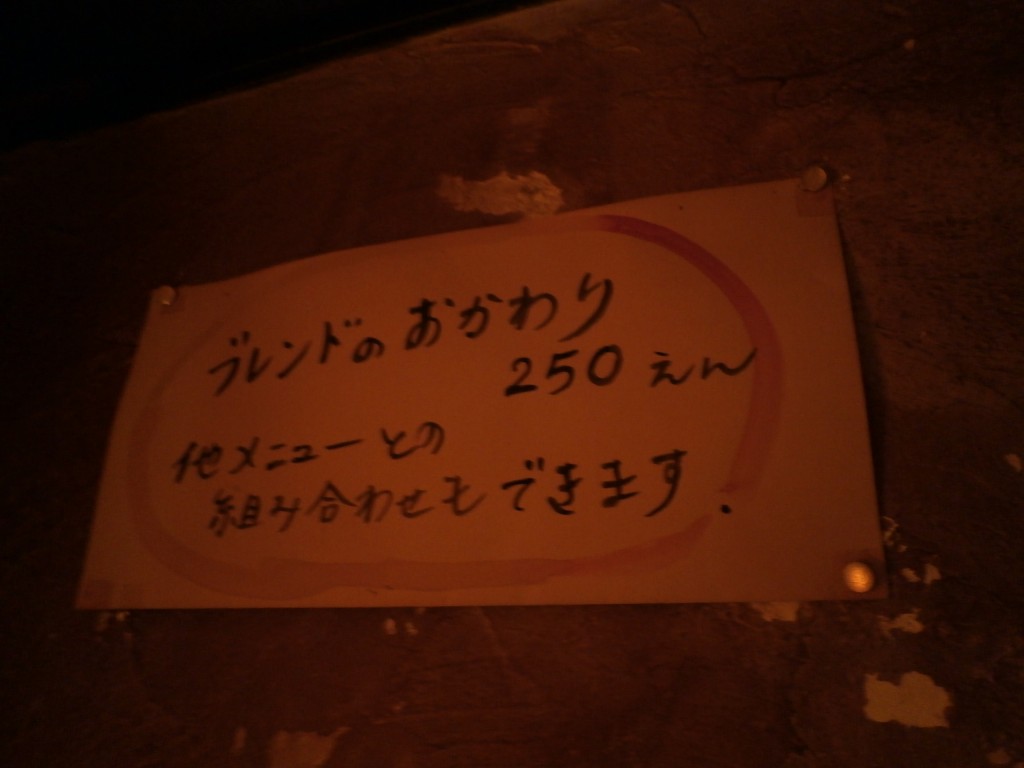 ブレンドのおかわり
250えん
他メニューとの
組み合わせもできます.